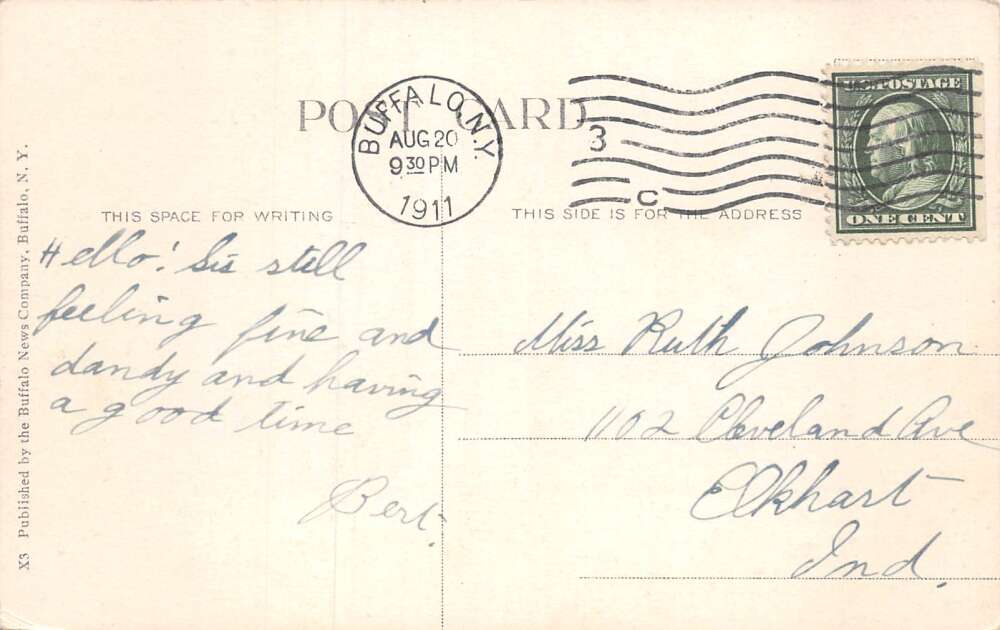 POST CARD
BUFFALO, N.Y.
AUG 20
9 30 PM
1911
3
C
U.S. POSTAGE
ONE CENT
THIS SPACE FOR WRITING
THIS SIDE IS FOR THE ADDRESS
Hello! Sis still
feeling fine and
dandy and having
a good time
Bert.
Miss Ruth Johnson
1102 Cleveland Ave
Elkhart
Ind.
X3 Published by the Buffalo News Company, Buffalo, N. Y.